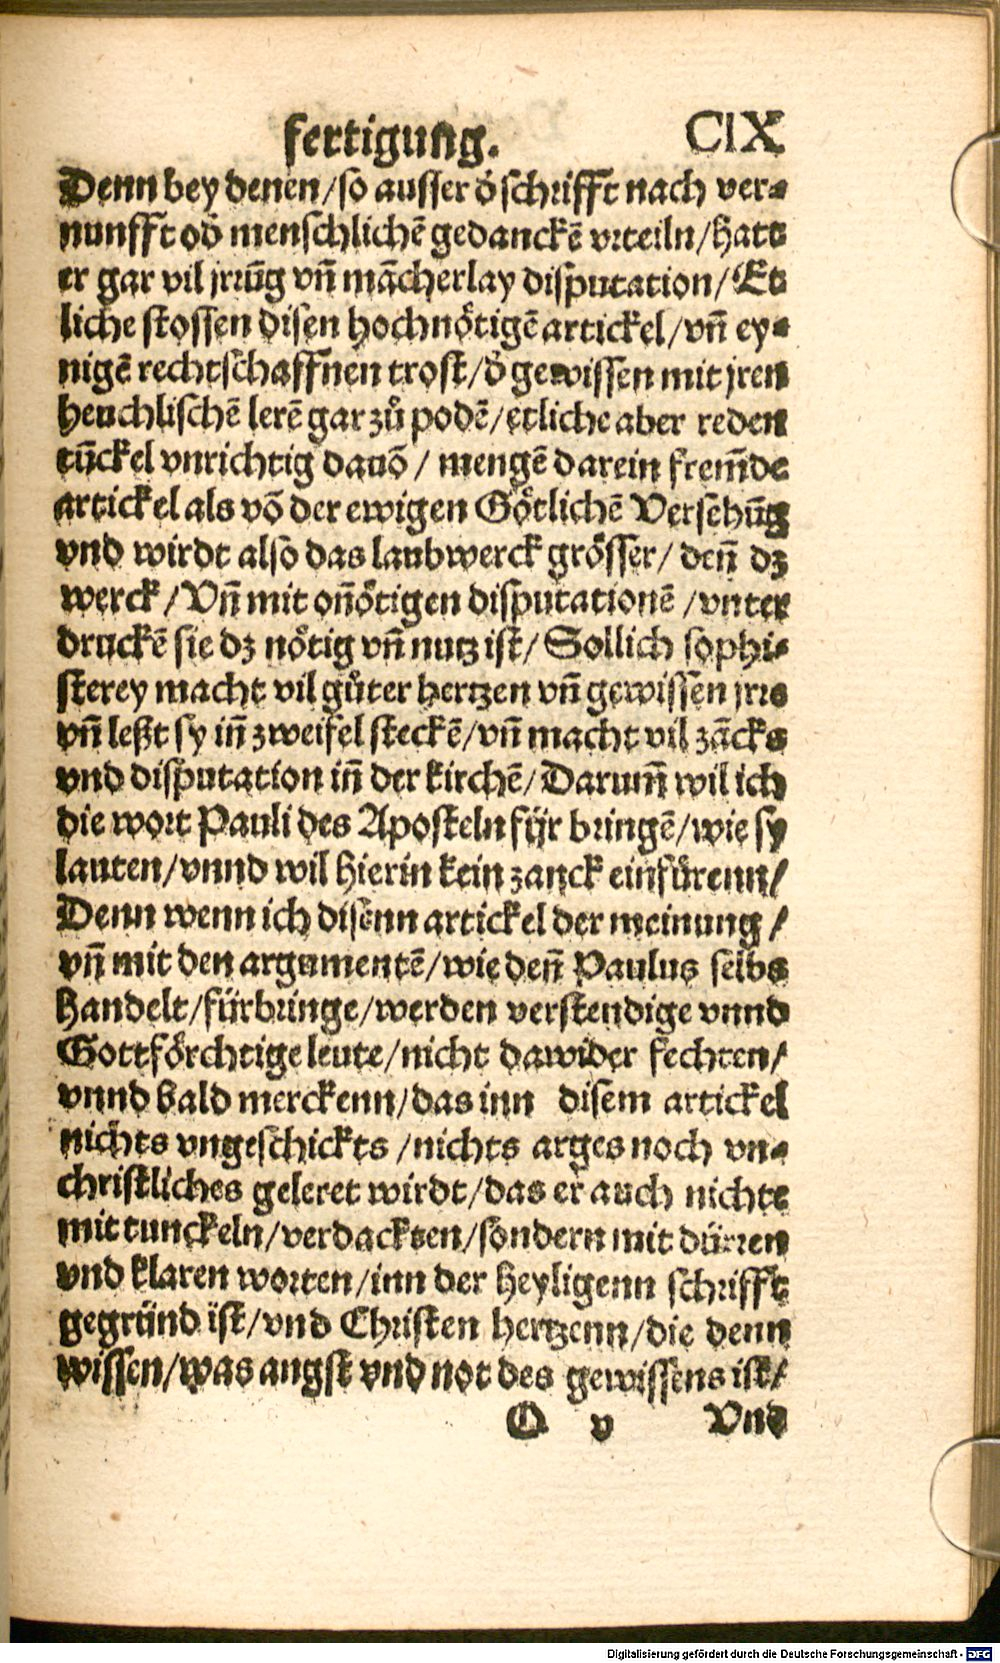 fertigung. CIX
Denn bey denen/so ausser d̕ schrifft nach ver-
nunfft od̕ menschlichē gedanckē vrteiln/hatt
er gar vil jrrūg vn̄ mācherlay disputation/Et
liche stossen disen hochnoͤtigē artickel/vn̄ ey-
nigē rechtschaffnen trost/d̕ gewissen mit jren
heuchlischē lerē gar zů podē/etliche aber reden
tūckel vnrichtig dauō/ mengē darein frem̄de
artickel als vō der ewigen Goͤtlichē Versehūg
vnd wirdt also das laubwerck groͤsser/ den̄ dz
werck/Vn̄ mit on̄oͤtigen disputationē/vnter
druckē sie dz noͤtig vn̄ nutz ist/ Sollich sophi-
sterey macht vil gůter hertzen vn̄ gewissen jrre
vn̄ leßt sy in̄ zweifel steckē/vn̄ macht vil zācks
vnd disputation in̄ der kirchē/ Darum̄ wil ich
die wort Pauli des Aposteln für bringē/wie sy
lauten/vnnd wil hierin kein zanck einfürenn/
Denn wenn ich disenn artickel der meinung/
vn̄ mit den argumentē/wie den̄ Paulus selbs
handelt/fürbringe/werden verstendige vnnd
Gottfoͤrchtige leute/nicht dawider fechten/
vnnd bald merckenn/das inn disem artickel
nichts vngeschickts/nichts arges noch vn-
christliches geleret wirdt/das er auch nichts
mit tunckeln/verdackten/sondern mit dürren
vnd klaren worten/inn der heyligenn schrifft
gegründ ist/vnd Christen hertzenn/die denn
wissen/was angst vnd not des gewissens ist/
O v Vnd
Digitalisierung gefördert durch die Deutsche Forschungsgemeinschaft - DFG